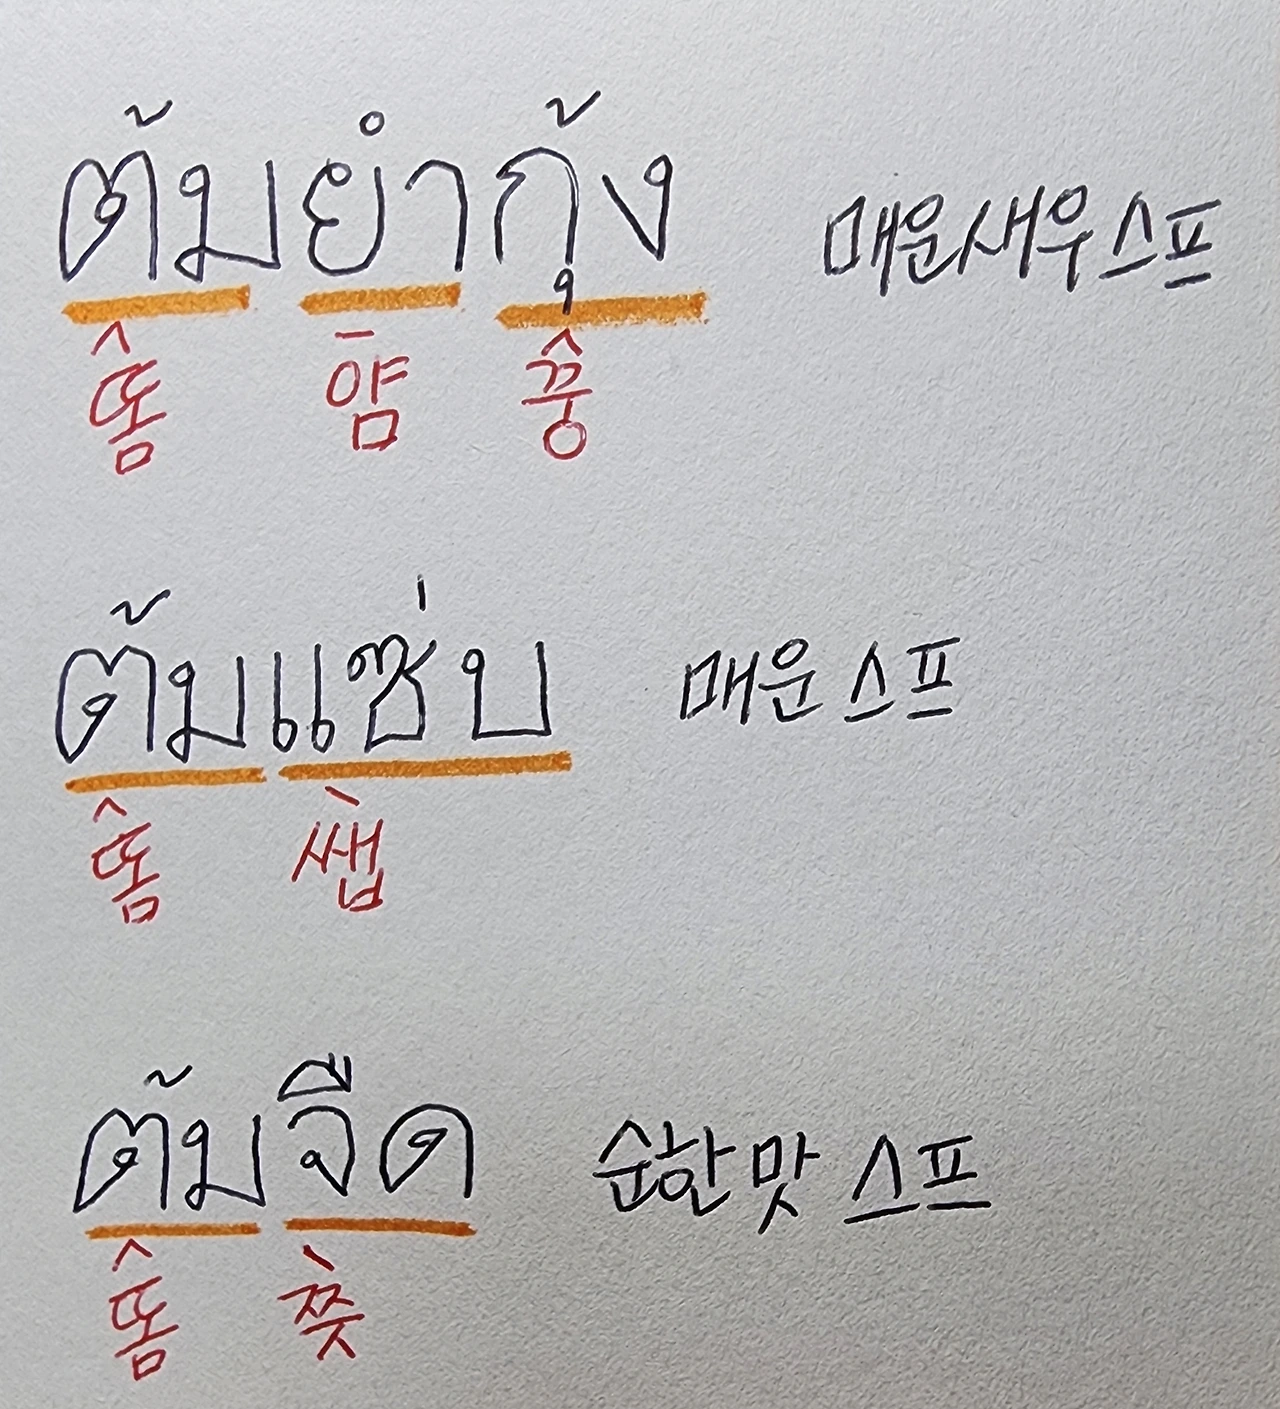 ต้มยำกุ้ง 매운새우스프
똠 얌 꿍
ต้มแซ่บ 매운스프
똠 쌥
ต้มจืด 순한맛 스프
똠 쯧